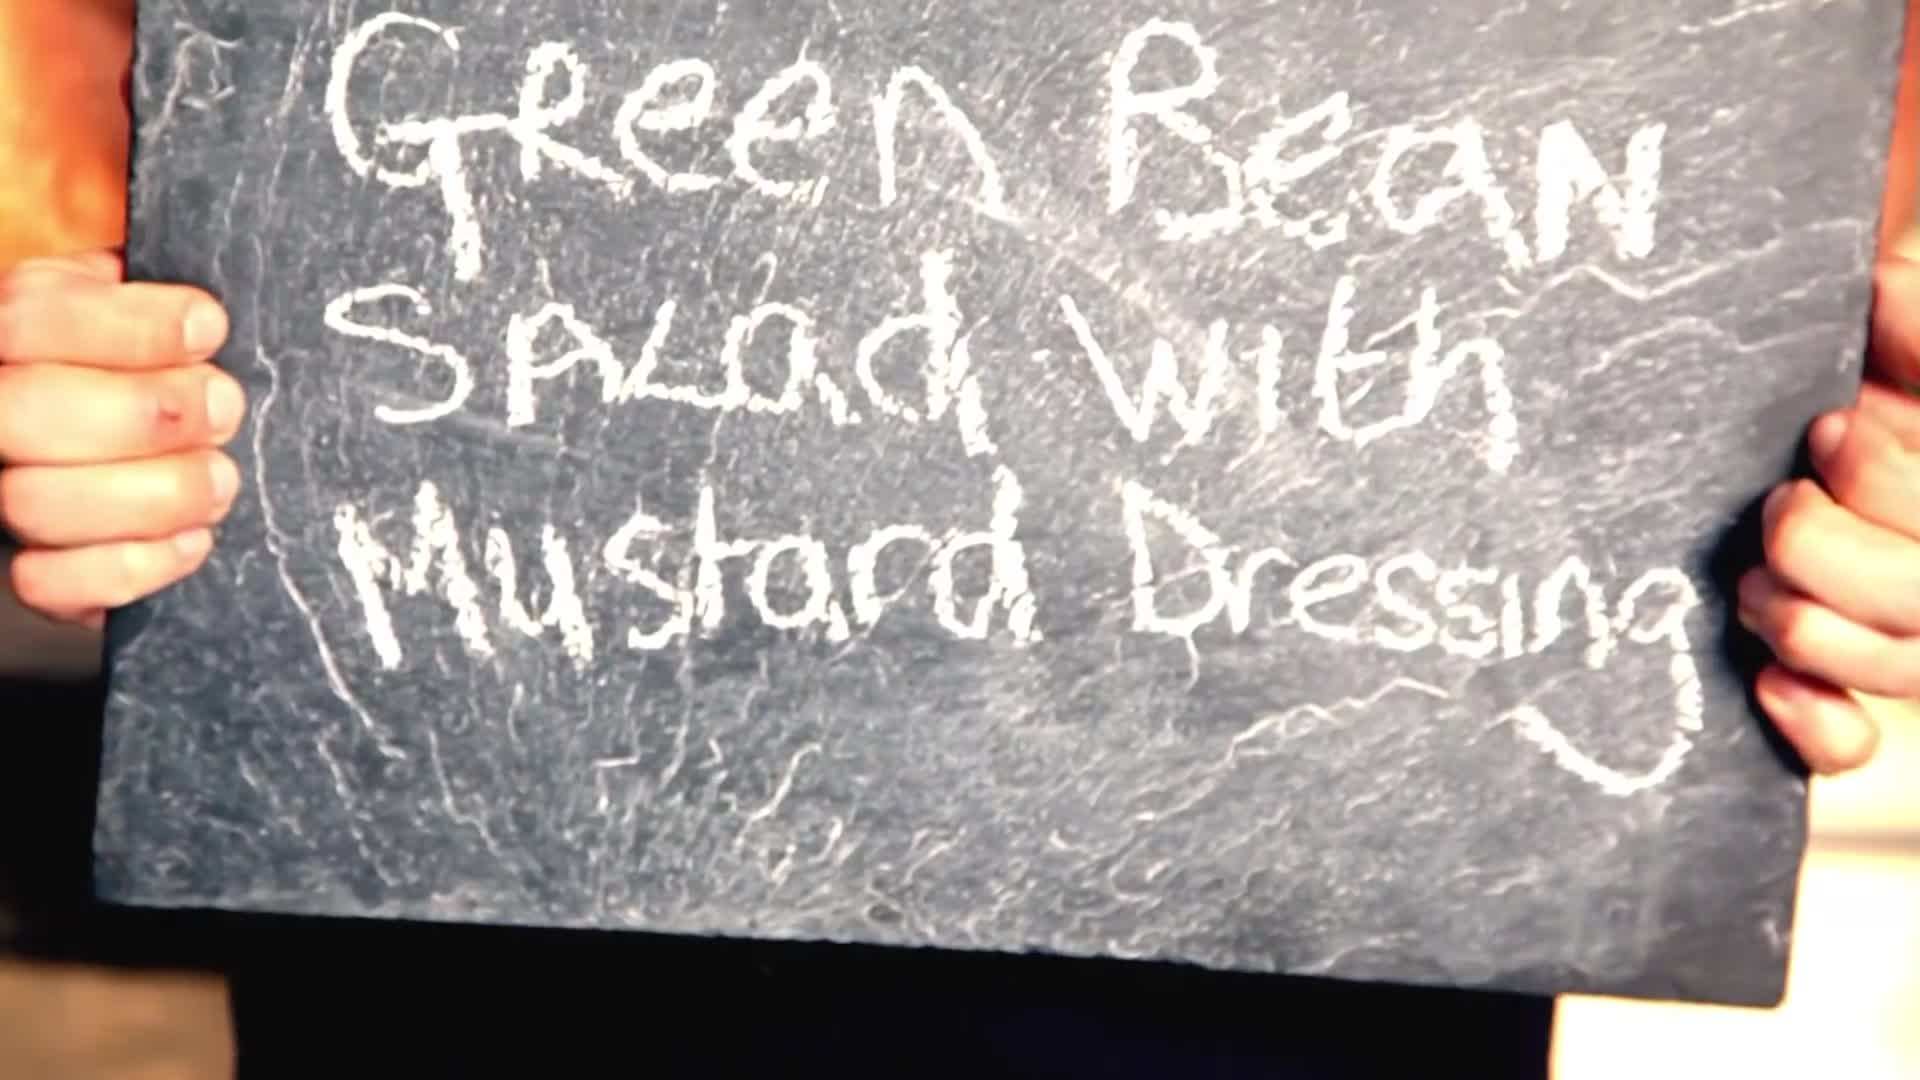 Green BeaN
SALad with
Mustard Dressing